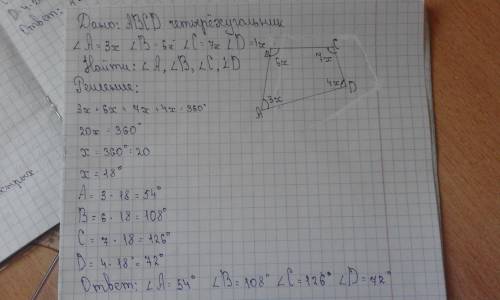 D 4
Ответ:
Дано: ABCD четырёхугольник
∠A=3x ∠B=6x ∠C=7x ∠D=4x
Найти: ∠A, ∠B, ∠C, ∠D
Решение:
3x+6x+7x+4x=360°
20x=360°
x=360°:20
x=18°
A=3·18=54°
B=6·18=108°
C=7·18=126°
D=4·18°=72°
Ответ: ∠A=54° ∠B=108° ∠C=126° ∠D=72°
C
6x 7x
4x D
A 3x